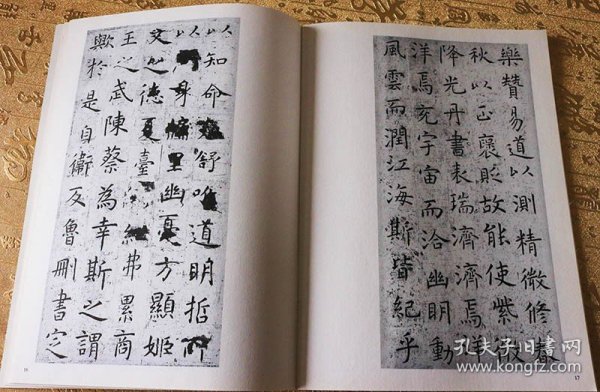 以知命舒唯道明哲
身里幽憂方顯姬
文之德夏臺弗累商
王之武陳蔡為幸斯之謂
歟於是自衛反魯刪書定
16
樂贊易道以測精微修春
秋以正褒貶故能使紫微
降光丹書表瑞濟濟焉洋
洋焉充宇宙而洽幽明動
風雲而潤江海斯皆紀乎
17
孔夫子旧书网
www.kongfz.com